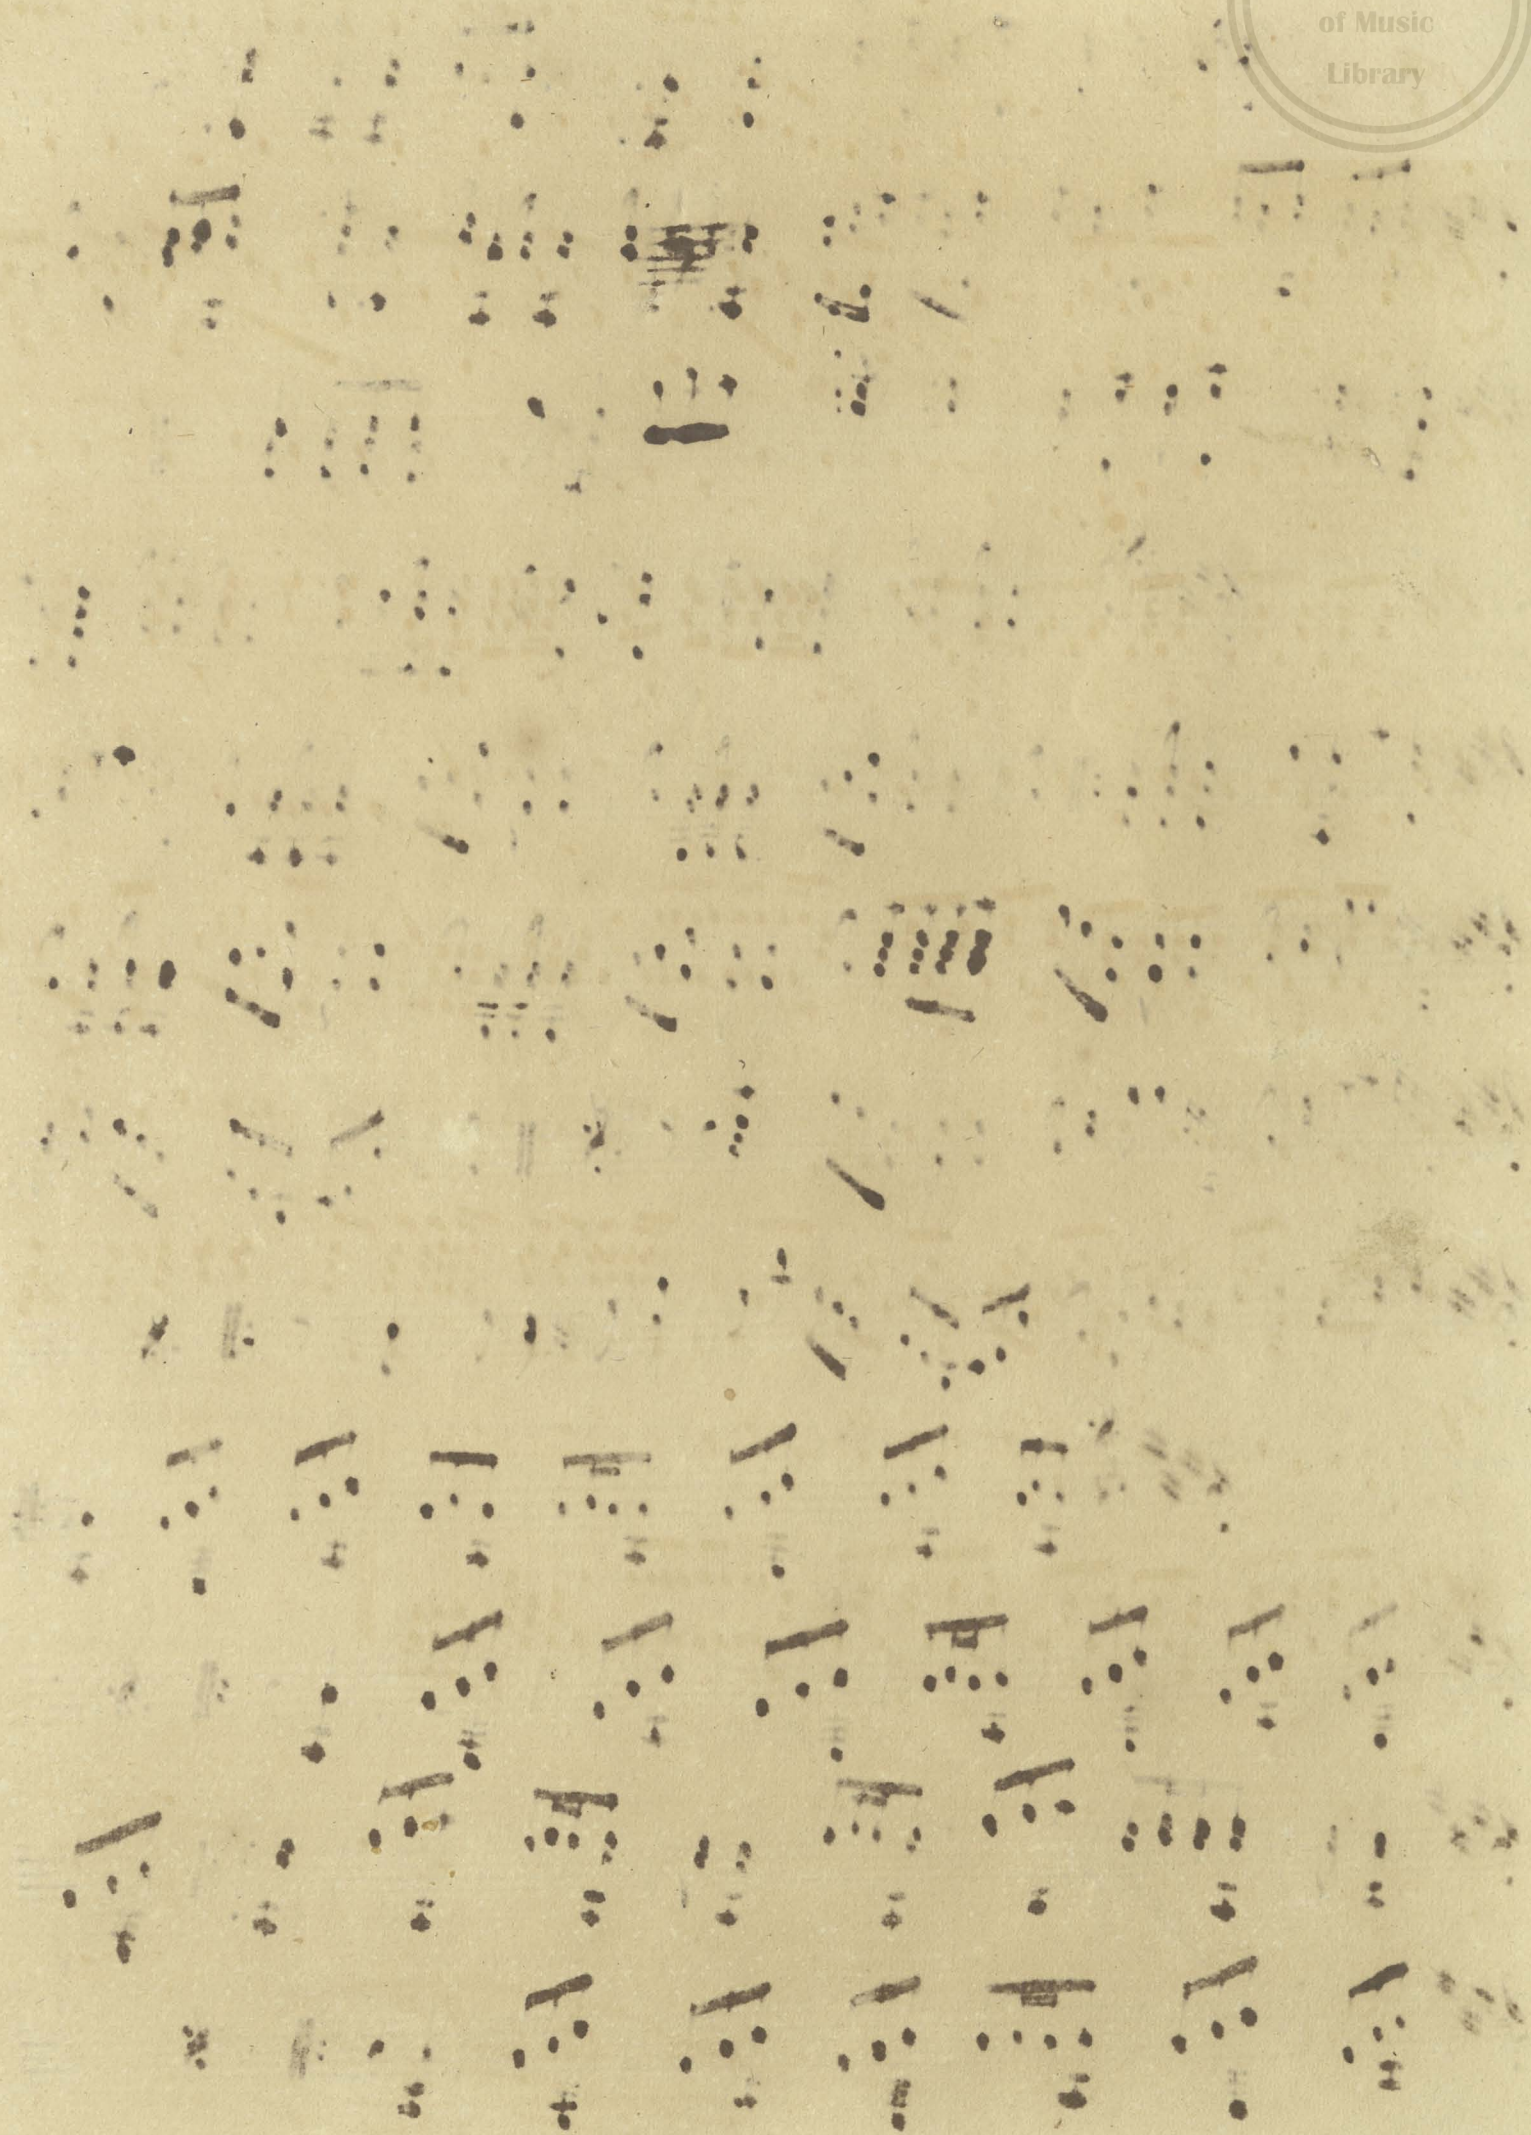 of Music
Library